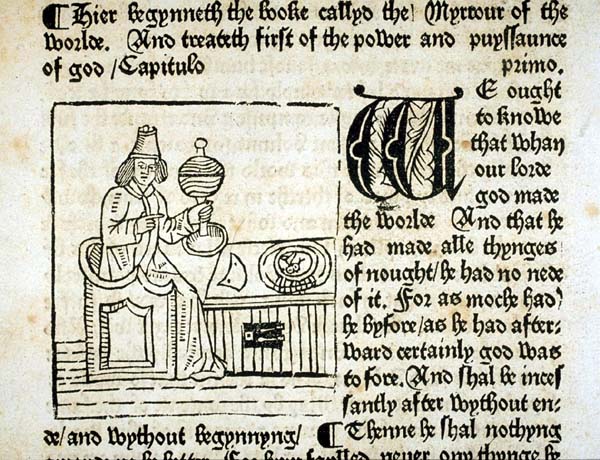 ¶ Hier begynneth the booke callyd the Myrrour of the
worlde. And treateth first of the power and puyssaunce
of god / Capitulo primo.
WE ought
to knowe
that whan
our lorde
god made
the worlde And that he
had made alle thynges
of nought/he had no nede
of it. For as moche had
he byfore/as he had after-
ward certainly god was
to fore. And shal be inces
santly after wythout en-
de/and wythout begynnyng/ ¶ Thenne he shal nothyng
be better / never ony thynge he